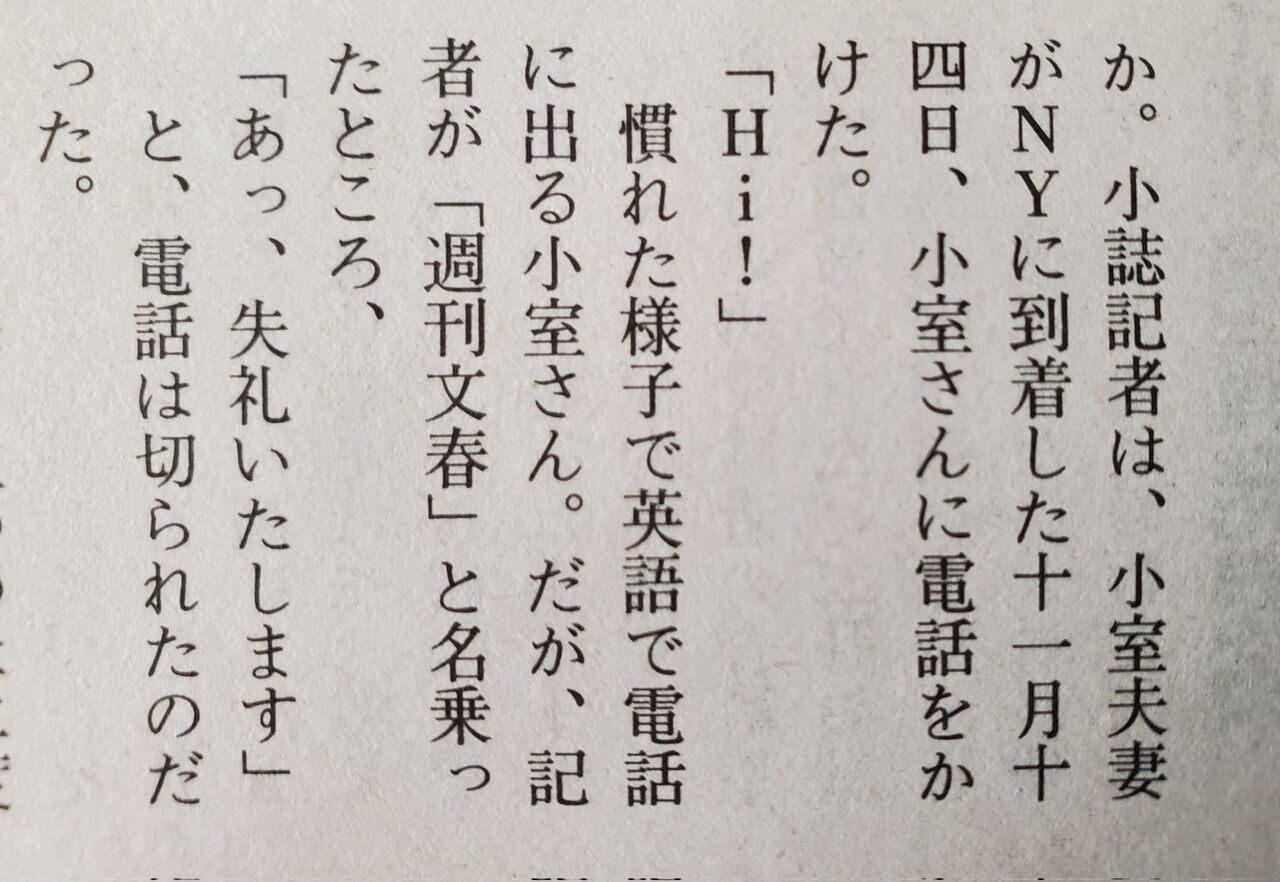 か。小誌記者は、小室夫妻
がNYに到着した十一月十
四日、小室さんに電話をか
けた。
「Hi！」
慣れた様子で英語で電話
に出る小室さん。だが、記
者が「週刊文春」と名乗っ
たところ、
「あっ、失礼いたします」
と、電話は切られたのだ
った。